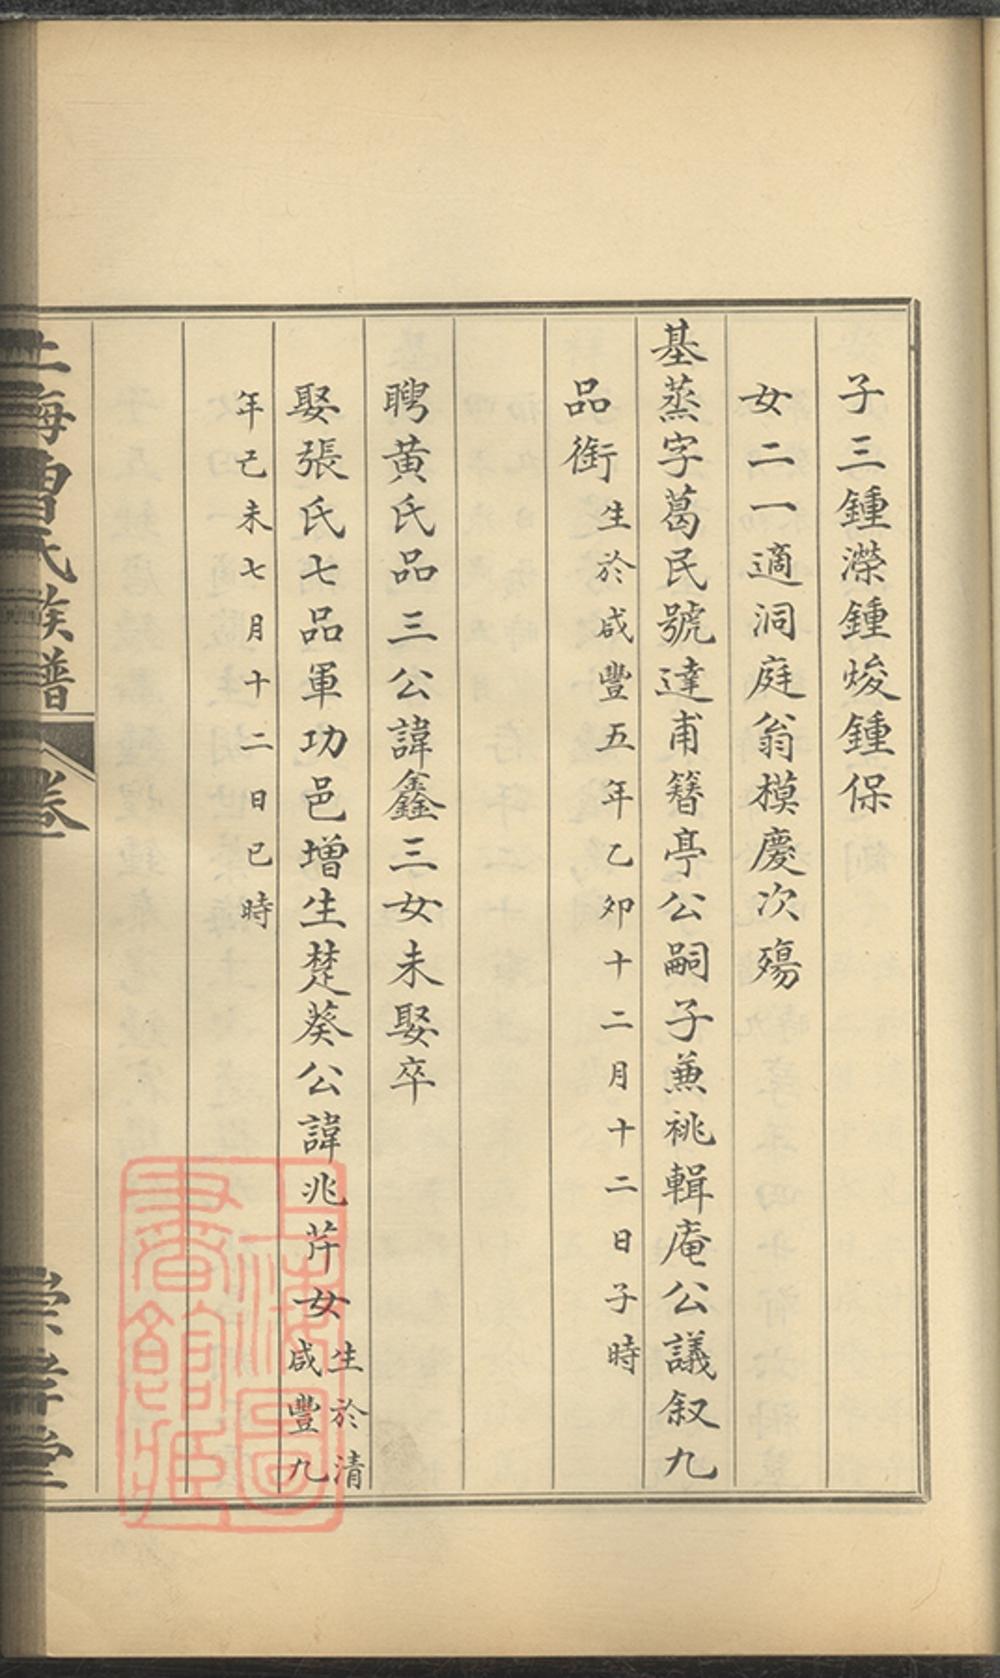 子三鍾濚鍾焌鍾保
女二一適洞庭翁模慶次殤
基蒸字葛民號達甫簪亭公嗣子兼祧輯庵公議叙九
品銜生於咸豐五年乙卯十二月十二日子時
聘黃氏品三公諱鑫三女未娶卒
娶張氏七品軍功邑增生楚葵公諱兆芹女生於清咸豐九
年己未七月十二日巳時
上海曹氏族譜
卷一
崇孝堂
上海圖書館藏